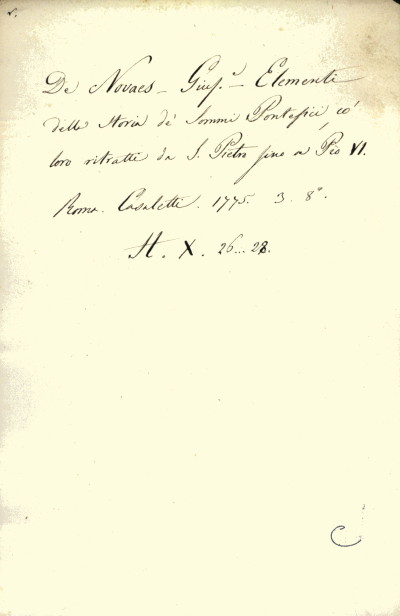 De Novaes – Giuf.e – Elementi
delle Storia de' Sommi Pontefici, co'
loro ritratti da S. Pietro fino a Pio VI.
Roma. Casaletti. 1775. 3. 8°.
St. X. 26...28.